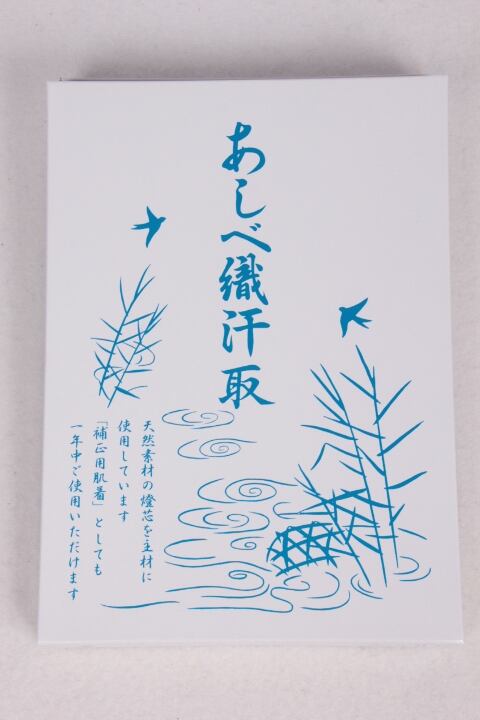 あしべ織汗取
天然素材の燈芯を主材に
使用しています
「補正用肌着」としても
一年中ご使用いただけます